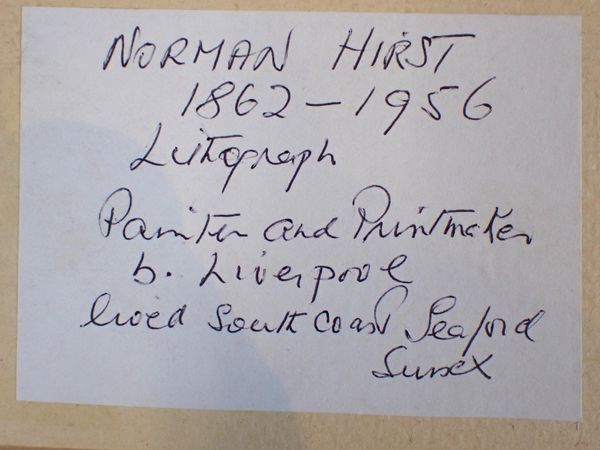 NORMAN HIRST
1862-1956
Lithograph
Painter and Printmaker
b. Liverpool
lived South Coast Seaford
Sussex